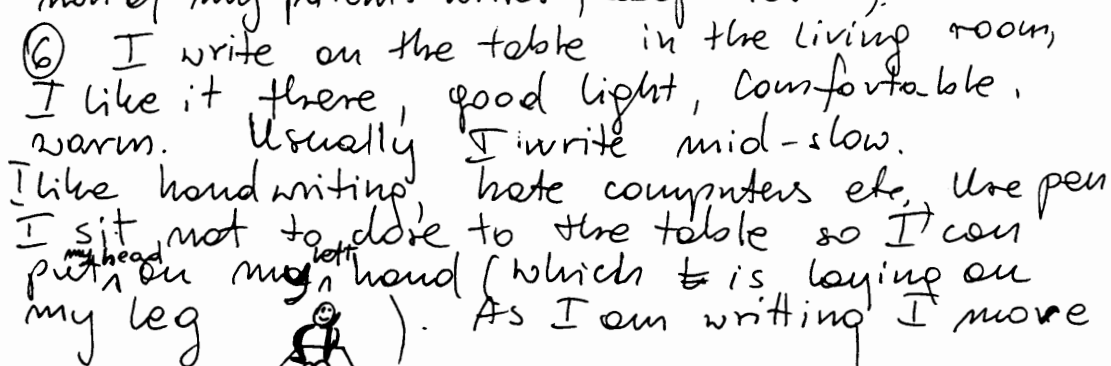 my parents
⑥ I write on the table in the living room,
I like it there, good light, comfortable,
warm. Usually I write mid-slow.
I like handwriting, hate computers etc, Use pen
I sit not to close to the table so I can
put my head on my left hand (which is laying on
my leg ). As I am writting I move